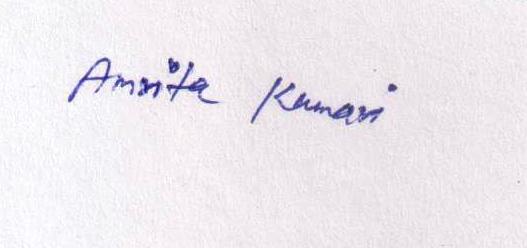 Amrita Kumari